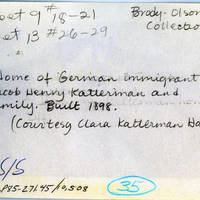 eet 9 # 18-21
eet 13 # 26-29
Brody-Olson
Collection
Home of German immigrant
acob Henry Katterman and
amily. Built 1898.
(Courtesy Clara Katterman Ha
S/S
P85-27145/10,508
35